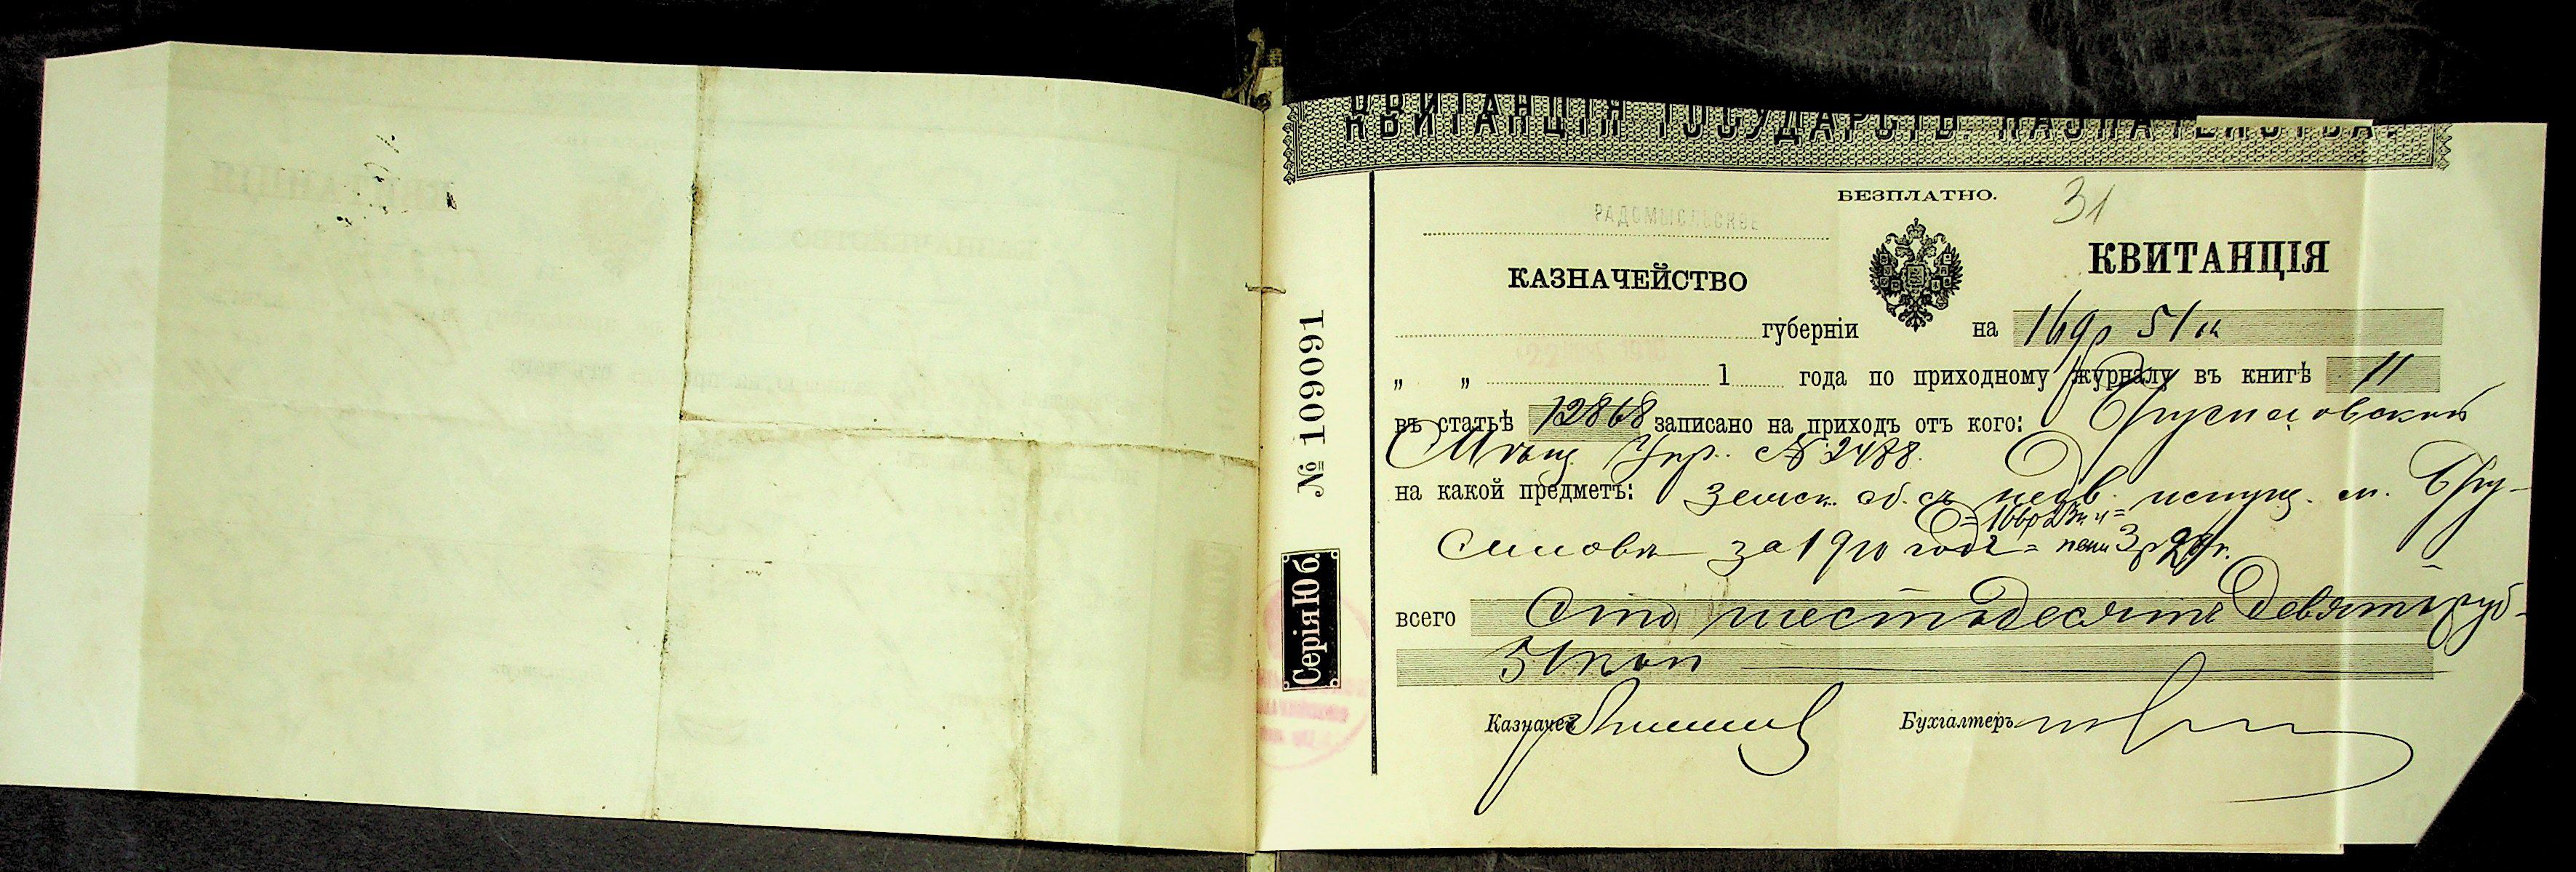 КВИТАНЦІЯ ГОСУДАРСТВ. КАЗНАЧЕЙСТВА.
БЕЗПЛАТНО.
31
РАДОМЫСЛЬСКОЕ
КАЗНАЧЕЙСТВО
КВИТАНЦІЯ
губерніи на 169р 51к
„ „ 1 года по приходному журналу въ книгѣ 11
въ статьѣ 12868 записано на приходъ отъ кого: Брусиловской
Мѣщ. Упр. № 2488.
на какой предметъ: Земск. сб. съ недв. имущ. м. Бру-
силова за 1910 годъ = пени 3р 28к.
= 166р 23к =
всего Сто шестьдесятъ девять руб-
51 коп
Казначей
Бухгалтеръ
№ 109091
Серія Ю б.